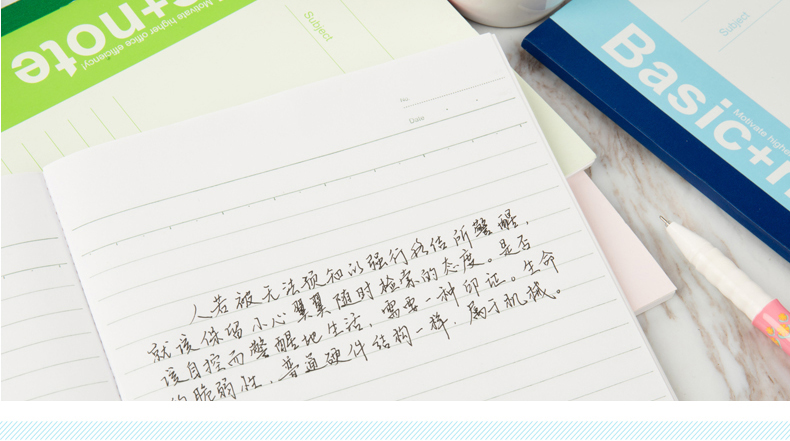 c+note
Motivate higher office efficiency!
Subject
Basic+n
Motivate highe
Subject
No.
Date
人若被无法预知以强行格估所警醒，
就该保留小心翼翼随时检索的态度。是否
该自控而警醒地生活，需要一种印证。生命
的脆弱性，普通硬件结构一样，属于机械。